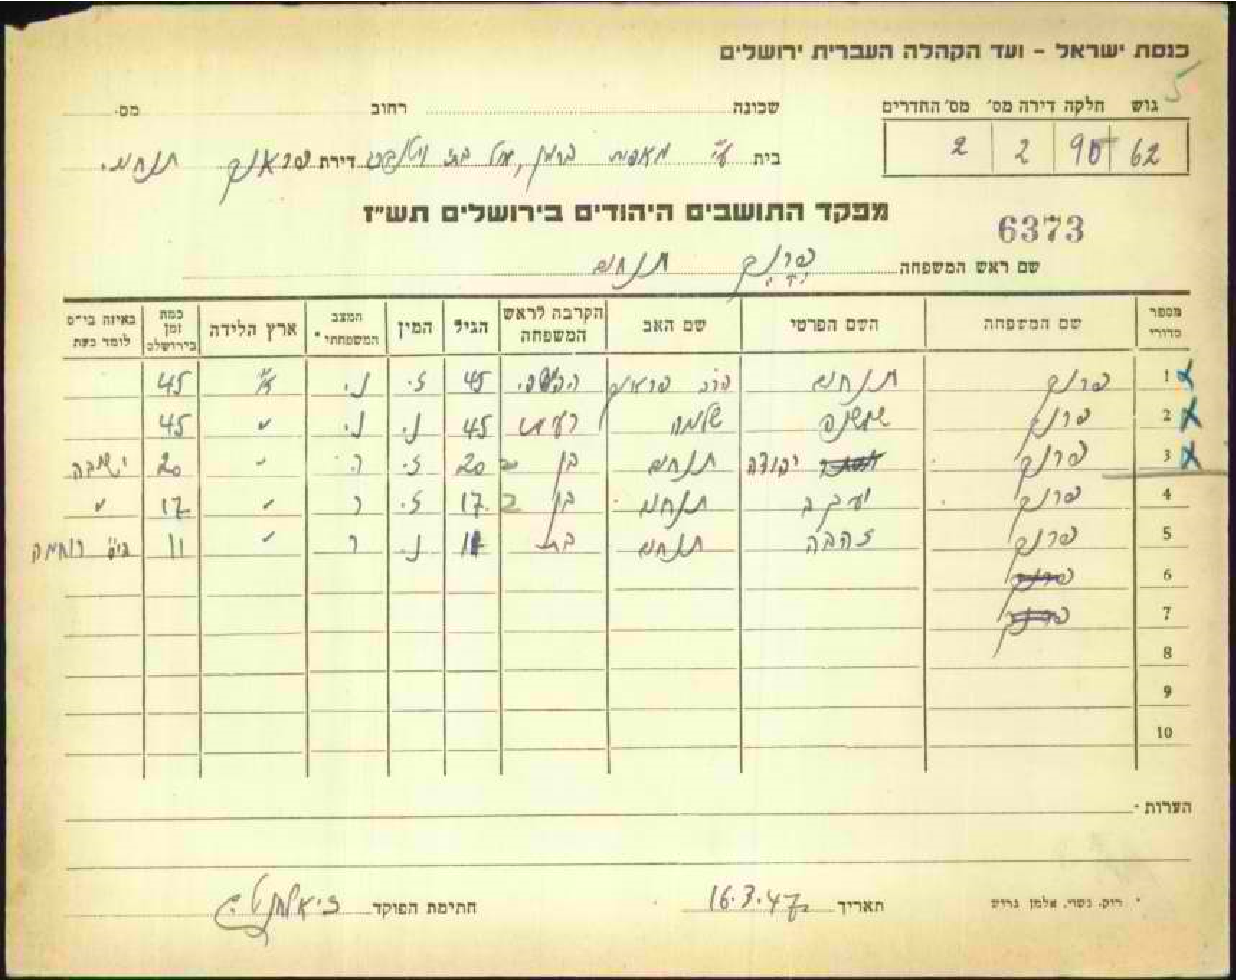 כנסת ישראל – ועד הקהלה העברית ירושלים
5
גוש חלקה דירה מס' מס' החדרים
62 90 2 2
שכונה רחוב מס.
בית ע"י מאפית ברמן, דירת פראנק תנחום.
מפקד התושבים היהודים בירושלים תש"ז
6373
שם ראש המשפחה פרנק תנחום
מספר סדורי שם המשפחה השם הפרטי שם האב הקרבה לראש המשפחה הגיל המין המצב המשפחתי* ארץ הלידה כמה זמן בירושלים באיזה בי"ס לומד כעת
1 פרנק תנחום פראנק 45 ז. נ. א"י 45
2 פרנק שלמה 45 נ. נ. " 45
3 פרנק יהודה תנחום בן 20 ז. ר " 20 ישיבה
4 פרנק יעקב תנחום בן 17 ז. ר " 17 "
5 פרנק זהבה תנחום בת 11 נ. ר " 11 בי"ס רוחמה
6 פרנק
7 פרנק
8
9
10
הערות
* רוק, נשוי, אלמן גרוש
תאריך 16.3.47 חתימת הפוקד